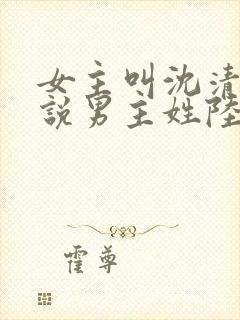 女主叫沈清
說男主姓陸
霍尊